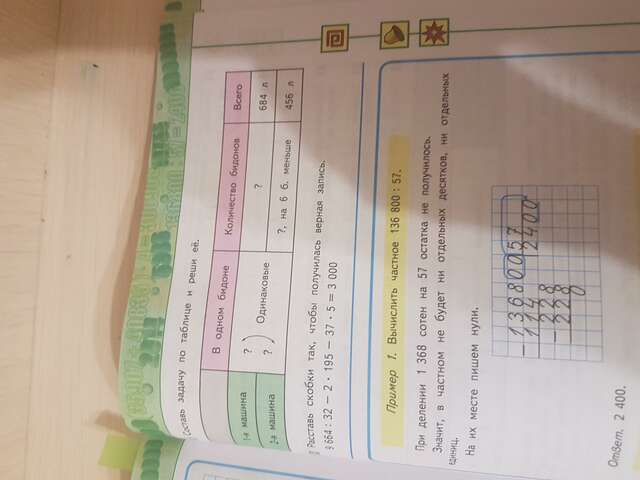 Составь задачу по таблице и реши её.
В одном бидоне Количество бидонов Всего
1-я машина ? ? 684 л
Одинаковые
2-я машина ? ?, на 6 б. меньше 456 л
Расставь скобки так, чтобы получилась верная запись.
664 : 32 − 2 · 195 − 37 · 5 = 3 000
Пример 1. Вычислить частное 136 800 : 57.
При делении 1 368 сотен на 57 остатка не получилось.
Значит, в частном не будет ни отдельных десятков, ни отдельных
единиц.
На их месте пишем нули.
136800 57
114 2400
228
228
0
Ответ. 2 400.